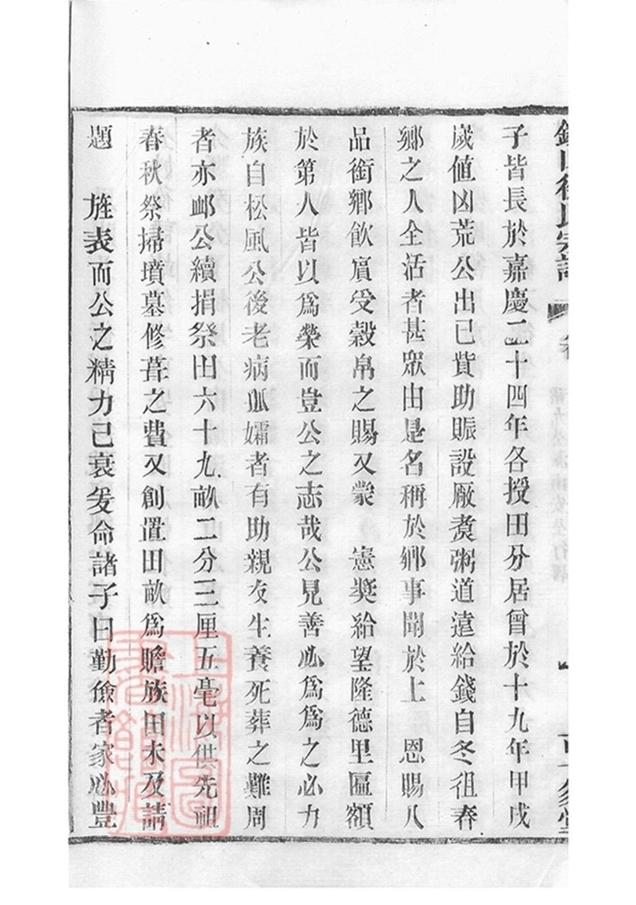 子皆長於嘉慶二十四年各授田分居曾於十九年甲戌
歲值凶荒公出己貲助賑設厰煑粥道遠給錢自冬徂春
鄉之人全活者甚眾由是名稱於鄉事聞於上　恩賜八
品銜鄉飲賔受穀帛之賜又蒙　憲奬給望隆德里匾額
於第人皆以爲榮而豈公之志哉公見善必爲爲之必力
族自松風公後老病孤孀者有助親友生養死葬之難周
者亦䘏公續捐祭田六十九畝二分三厘五毫以供先祖
春秋祭掃墳墓修葺之費又創置田畝爲贍族田未及請
題　旌表而公之精力已衰爰命諸子曰勤儉者家必豐